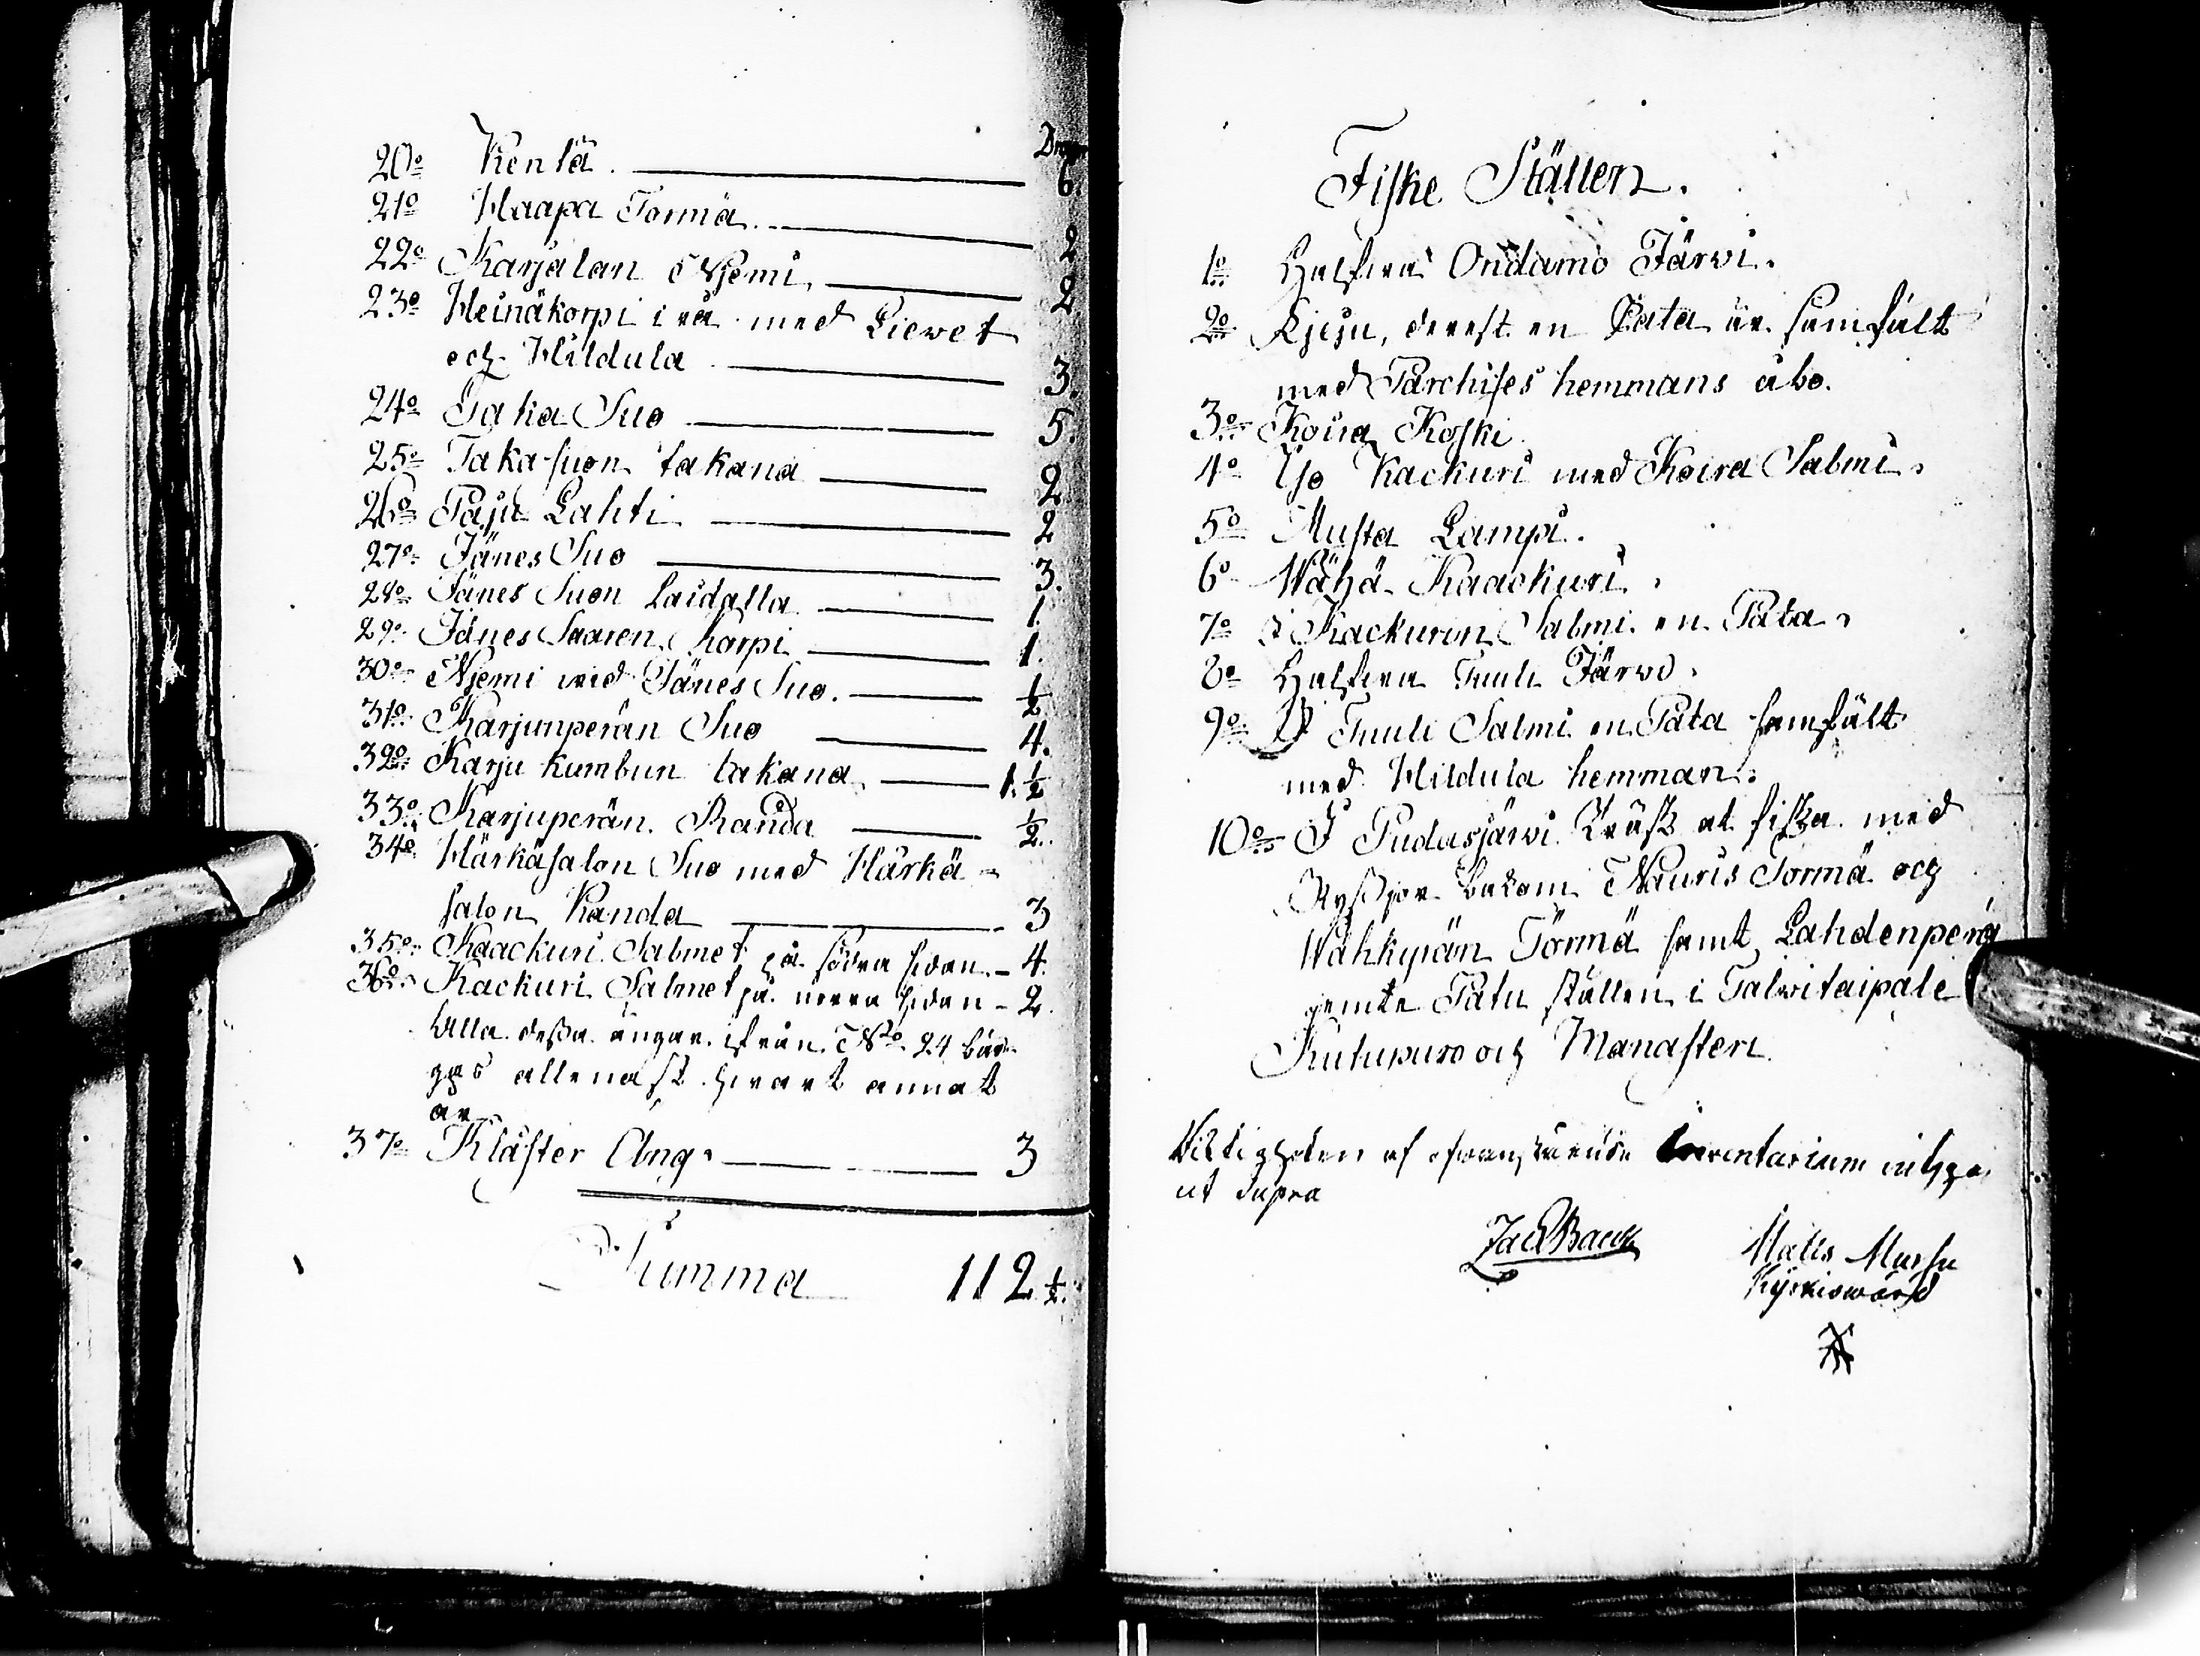 20o Kenlä. 6.
21o Haapa Tormä. 2
22o Karjalan Njemi. 2
23o Heinäkorpi i rå med Liewet
och Hildula 3.
24o Taka Suo 5.
25o Taka-suon takana 2
26o Paju Lahti 2
27o Jänes Suo 3.
28o Jänes Suon Laidalla 1.
29o Jänes Saaren korpi 1.
30o Njemi wid Jänes Suo. ½
31o Karjunperän Suo 4.
32o Karju kumbun takana 1.½
33o Karjuperän Randa ½
34o Härkäsalon Suo med Härkä-
salon Randa 3
35o Kaackuri Salmet på södra sidan. - 4.
36o Kackuri Salmet på norra sidan - 2.
Alla dessa ängar ifrån No. 24 bär-
gas allenast hwart annat
år
37o Kläster Äng. 3
Summa 112½.
Fiske Ställen.
1o Halfwa Ondamo Järwi.
2o Kjeju, derest en Pata är samfält
med Parchises hemmans åbo.
3o Koira Koski
4o Iso Kackuri med Koira Salmi.
5o Musta Lampi.
6o Wähä Kaackuri.
7o I Kackurin Salmi en Pata.
8o Halfwa Tuuli Järwi.
9o I Tuuli Salmi en Pata samfält
med Hildula hemman.
10o I Pudasjärwi Träsk at fiska med
Ryssjor bakom Nauris Tormä och
Wahkyrön Törmä samt Lahdenperä
jemte Patu ställen i Talwitaipale
Kutupuro och Manasteri.
Riktigheten af ofwanstående Inventarium
ut supra
Jac Backm
Matts Mursu
Kyrkiowärd